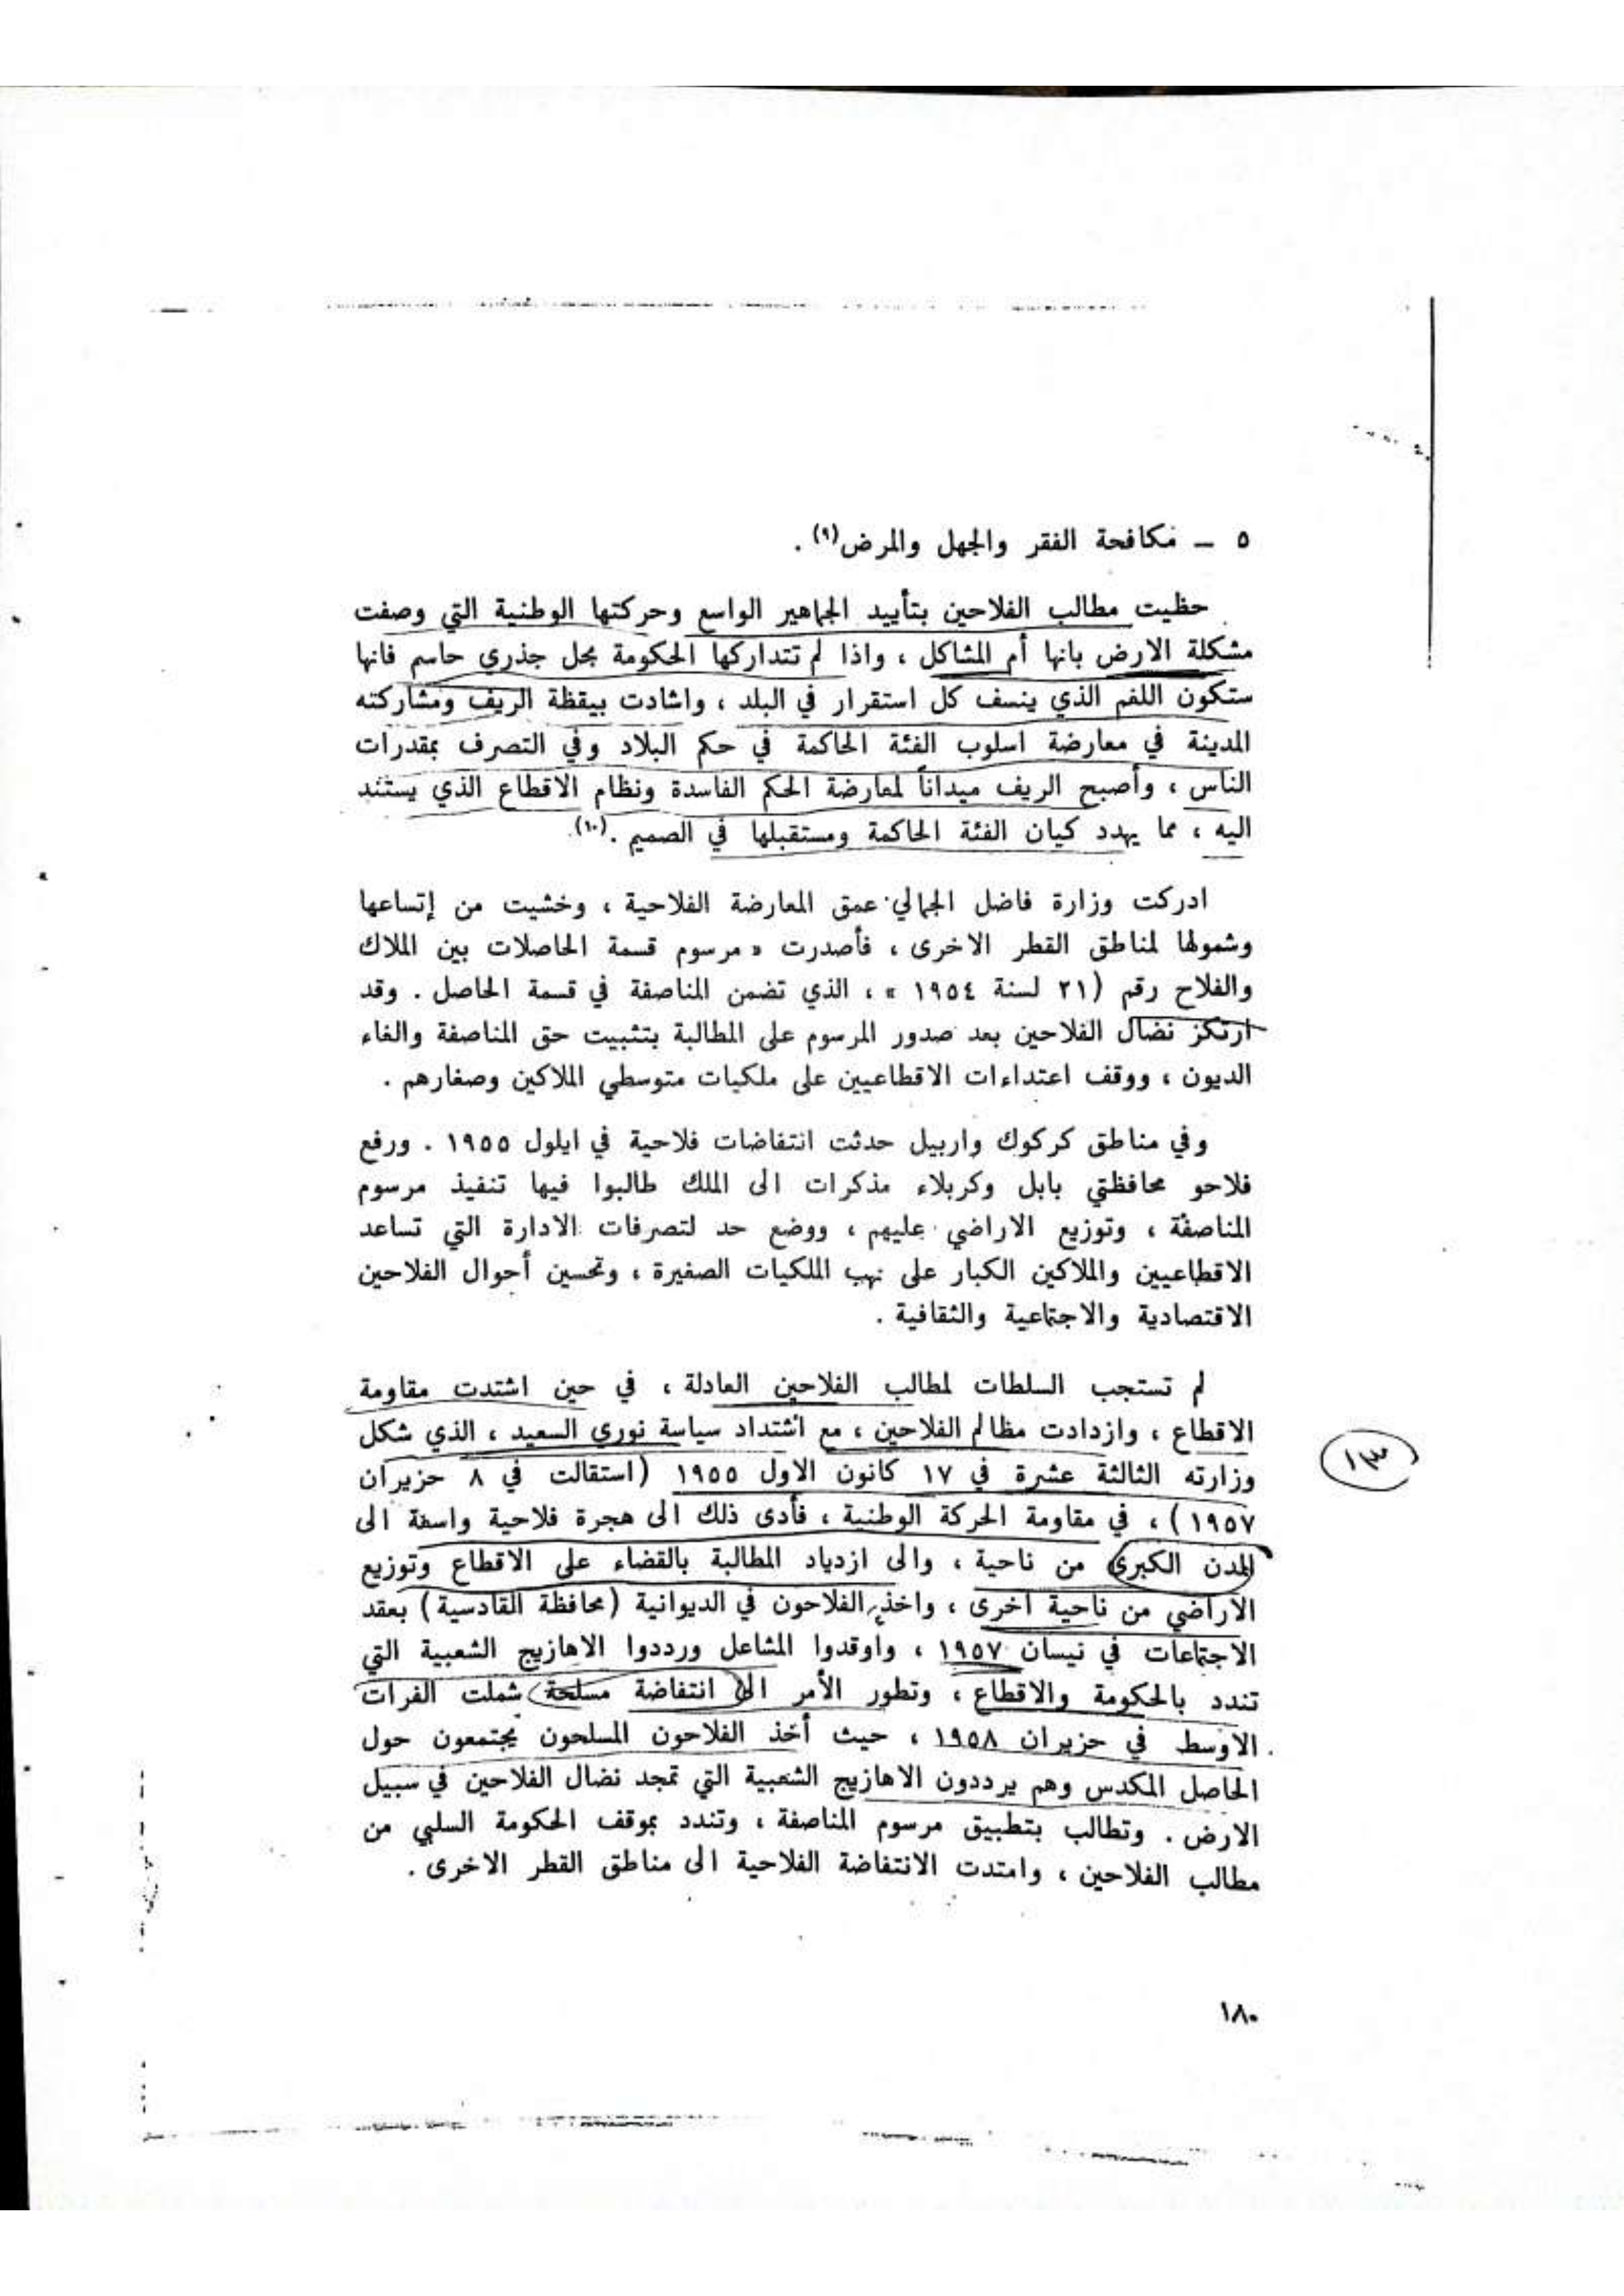 ٥ ــ مكافحة الفقر والجهل والمرض(٩) .
حظيت مطالب الفلاحين بتأييد الجماهير الواسع وحركتها الوطنية التي وصفت
مشكلة الارض بانها أم المشاكل ، واذا لم تتداركها الحكومة بحل جذري حاسم فانها
ستكون اللغم الذي ينسف كل استقرار في البلد ، واشادت بيقظة الريف ومشاركته
المدينة في معارضة اسلوب الفئة الحاكمة في حكم البلاد وفي التصرف بمقدرات
الناس ، وأصبح الريف ميداناً لمعارضة الحكم الفاسدة ونظام الاقطاع الذي يستند
اليه ، مما يهدد كيان الفئة الحاكمة ومستقبلها في الصميم .(١٠)
ادركت وزارة فاضل الجمالي عمق المعارضة الفلاحية ، وخشيت من إتساعها
وشمولها لمناطق القطر الاخرى ، فأصدرت « مرسوم قسمة الحاصلات بين الملاك
والفلاح رقم (٢١ لسنة ١٩٥٤ » ، الذي تضمن المناصفة في قسمة الحاصل . وقد
ارتكز نضال الفلاحين بعد صدور المرسوم على المطالبة بتثبيت حق المناصفة والغاء
الديون ، ووقف اعتداءات الاقطاعيين على ملكيات متوسطي الملاكين وصغارهم .
وفي مناطق كركوك واربيل حدثت انتفاضات فلاحية في ايلول ١٩٥٥ . ورفع
فلاحو محافظتي بابل وكربلاء مذكرات الى الملك طالبوا فيها تنفيذ مرسوم
المناصفة ، وتوزيع الاراضي عليهم ، ووضع حد لتصرفات الادارة التي تساعد
الاقطاعيين والملاكين الكبار على نهب الملكيات الصغيرة ، وتحسين أحوال الفلاحين
الاقتصادية والاجتماعية والثقافية .
لم تستجب السلطات لمطالب الفلاحين العادلة ، في حين اشتدت مقاومة
الاقطاع ، وازدادت مظالم الفلاحين ، مع اشتداد سياسة نوري السعيد ، الذي شكل
وزارته الثالثة عشرة في ١٧ كانون الاول ١٩٥٥ (استقالت في ٨ حزيران
١٩٥٧) ، في مقاومة الحركة الوطنية ، فأدى ذلك الى هجرة فلاحية واسعة الى
المدن الكبرى من ناحية ، والى ازدياد المطالبة بالقضاء على الاقطاع وتوزيع
الاراضي من ناحية اخرى ، واخذ الفلاحون في الديوانية (محافظة القادسية) بعقد
الاجتماعات في نيسان ١٩٥٧ ، وأوقدوا المشاعل ورددوا الاهازيج الشعبية التي
تندد بالحكومة والاقطاع ، وتطور الأمر الى انتفاضة مسلحة شملت الفرات
الاوسط في حزيران ١٩٥٨ ، حيث أخذ الفلاحون المسلحون يجتمعون حول
الحاصل المكدس وهم يرددون الاهازيج الشعبية التي تمجد نضال الفلاحين في سبيل
الارض . وتطالب بتطبيق مرسوم المناصفة ، وتندد بموقف الحكومة السلبي من
مطالب الفلاحين ، وامتدت الانتفاضة الفلاحية الى مناطق القطر الاخرى .
١٣
١٨٠